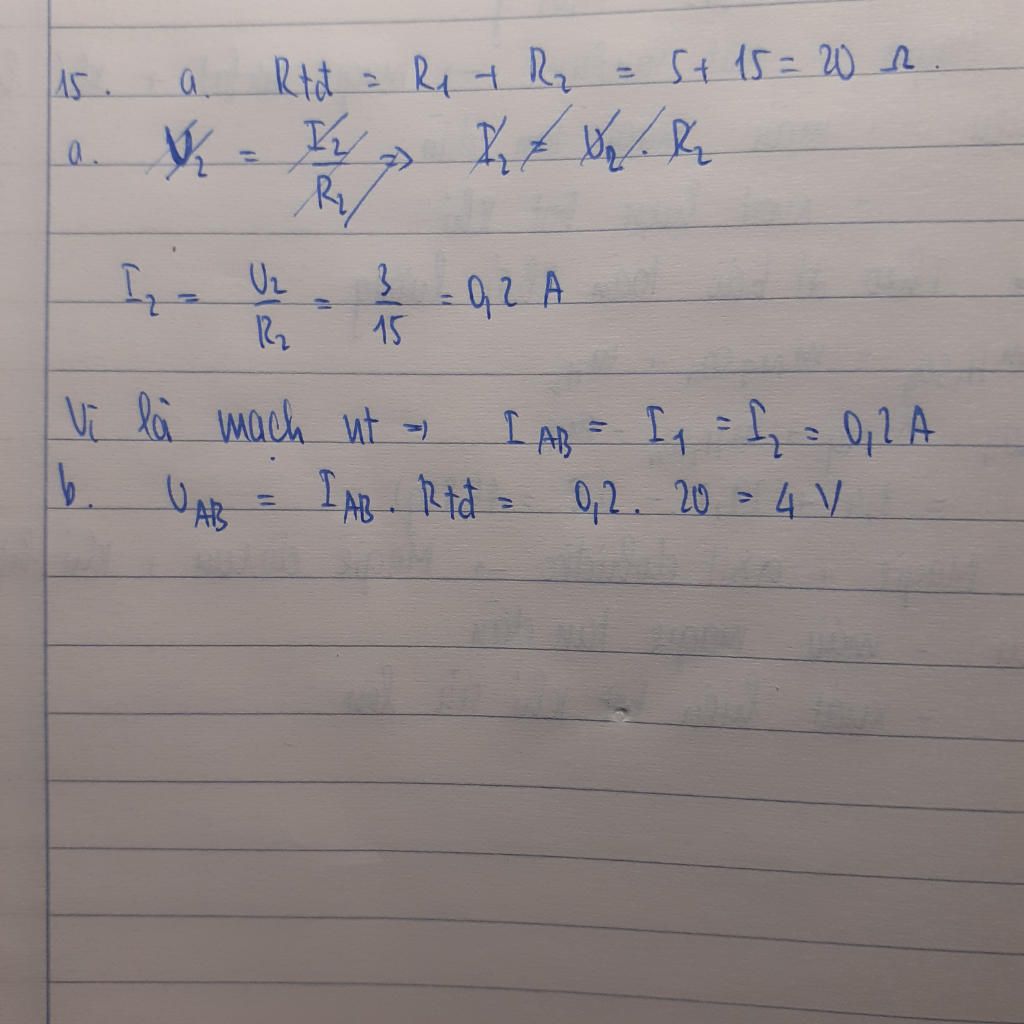 15. a. Rtđ = R₁ + R₂ = 5 + 15 = 20 Ω.
a. U₂ = I₂/R₂ => I₂ = U₂ . R₂
I₂ = U₂/R₂ = 3/15 = 0,2 A
Vì là mạch nt => I AB = I₁ = I₂ = 0,2 A
b. U AB = I AB . Rtđ = 0,2 . 20 = 4 V